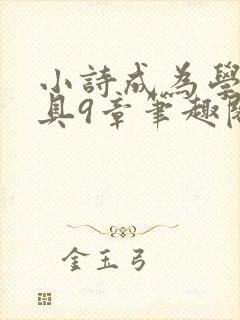 小詩成為學
具9章筆趣閣
金玉弓